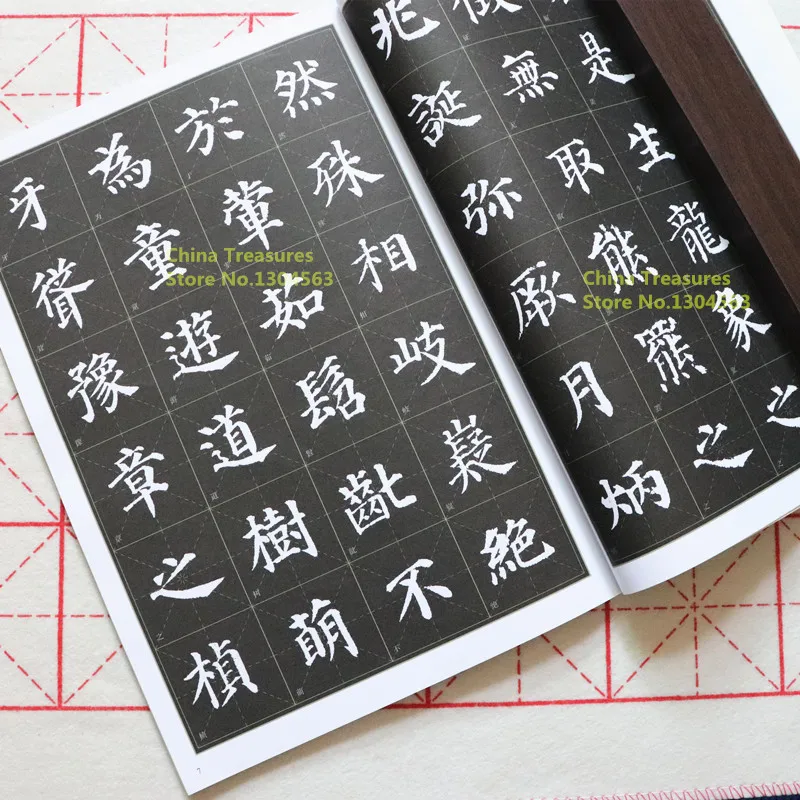 是生龍象之
無取熊羆之
兆誕弥厥月炳
然殊相岐嶷絕
於葷茹髫齔不
為童遊道樹萌
牙聳豫章之楨
7
China Treasures
Store No.1304563
China Treasures
Store No.1304563